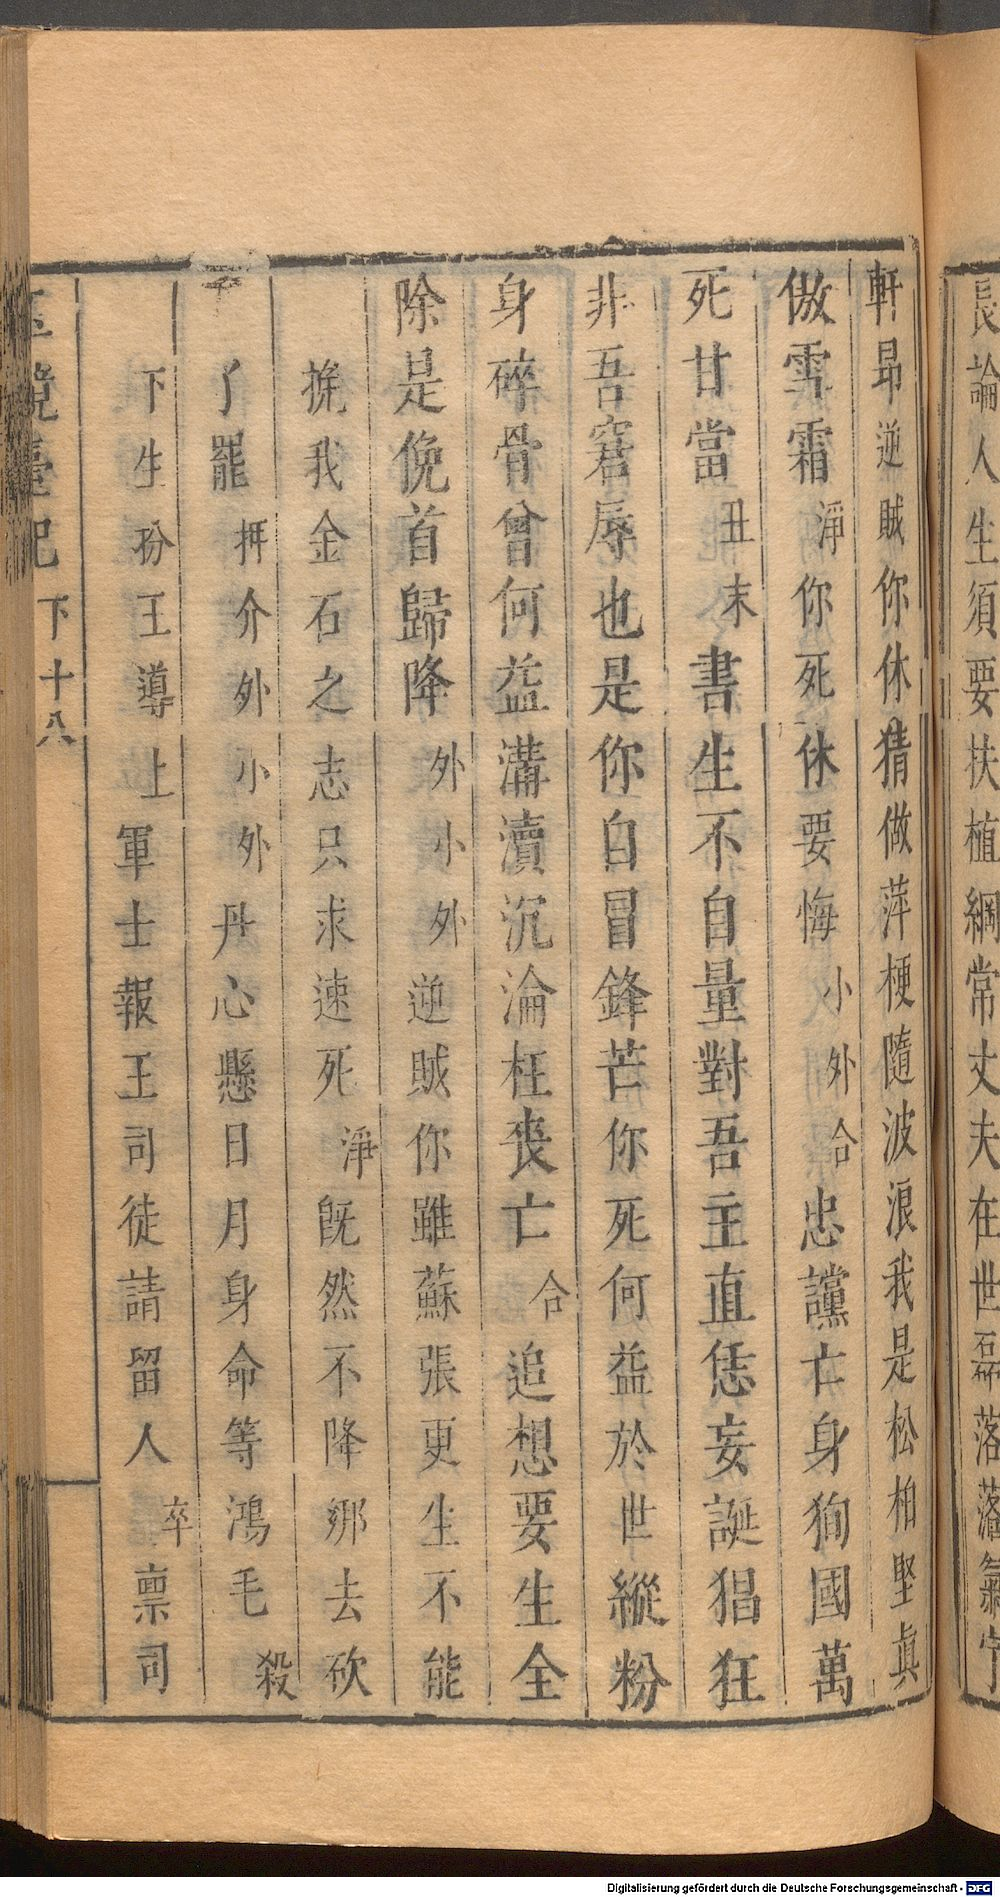 長論人生須要扶植綱常丈夫在世磊落落氣宇
軒昂逆賊你休猜做萍梗隨波浪我是松柏堅眞
傲雪霜淨你死休要悔小外合忠讜亡身狥國萬
死甘當丑末書生不自量對吾主直恁妄誕猖狂
非吾窘辱也是你自冒鋒芒你死何益於世縱粉
身碎骨曾何益溝瀆沉淪枉喪亡合追想要生全
除是俛首歸降外小外逆賊你雖蘇張更生不能
挠我金石之志只求速死淨旣然不降綁去砍
了罷拑介外小外丹心懸日月身命等鴻毛殺
下生扮王導上軍士報王司徒請留人卒禀司
玉鏡臺記 下 十八
Digitalisierung gefördert durch die Deutsche Forschungsgemeinschaft - DFG